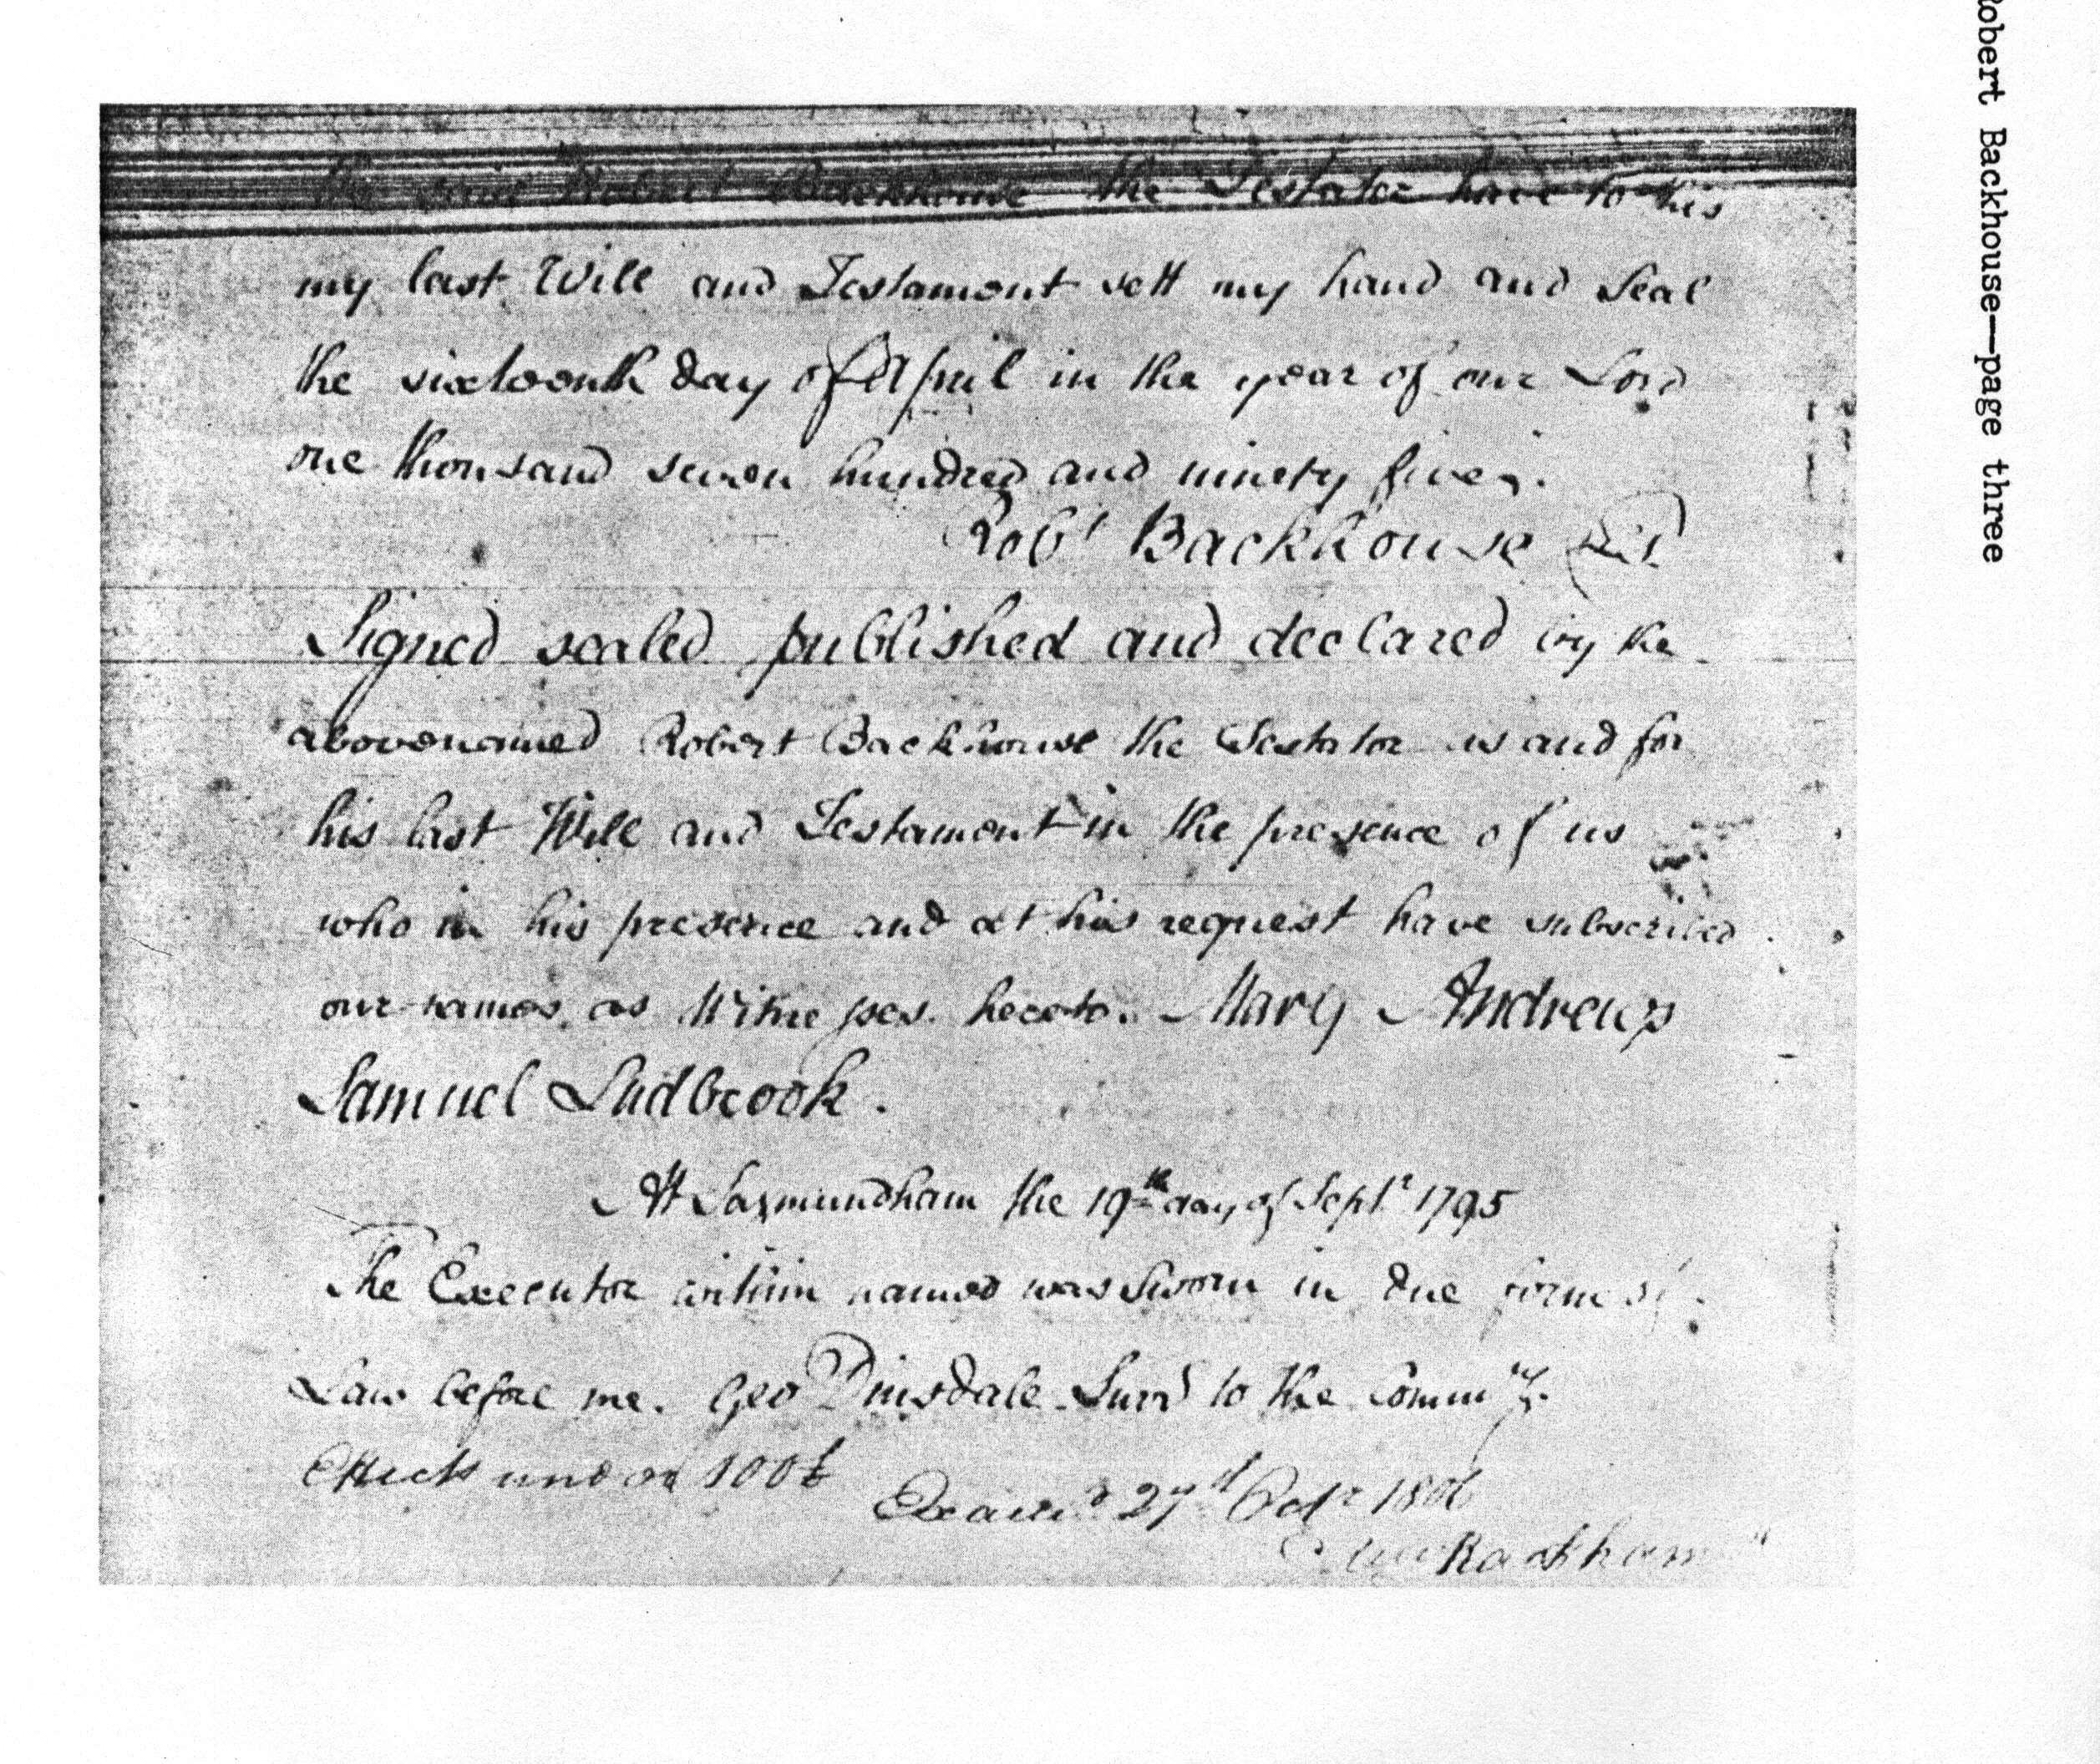 the said Robert Backhouse the Testator have to this
my last Will and Testament sett my hand and Seal
the sixteenth day of April in the year of our Lord
one thousand seven hundred and ninety five.
Robt Backhouse
Signed sealed published and declared by the
abovenamed Robert Backhouse the Testator as and for
his last Will and Testament in the presence of us
who in his presence and at his request have subscribed
our names as Witnesses hereto. Mary Andrews
Samuel Ludbrook.
At Saxmundham the 19th day of Septr 1795
The Executor within named was Sworn in due form of
Law before me. Geo Dinsdale Surr to the Commry.
Effects under 100£
Examd 27th Octr 1806
Rackham
Robert Backhouse—page three